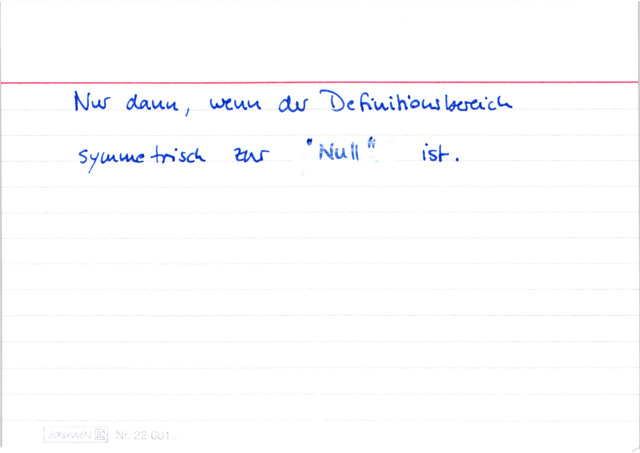 Nur dann, wenn der Definitionsbereich
symmetrisch zur "Null" ist.
BRUNNEN Nr. 22 601